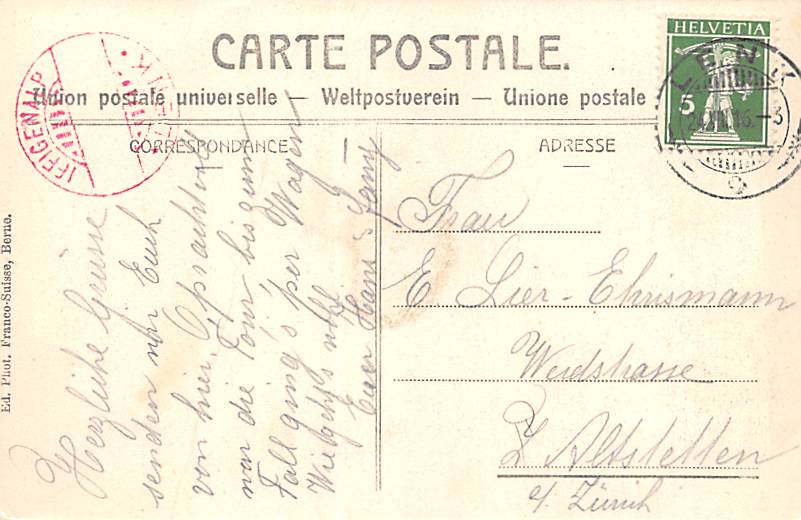 CARTE POSTALE.
Union postale universelle — Weltpostverein — Unione postale
CORRESPONDANCE
ADRESSE
HELVETIA
5
LENK
IFFIGENALP
Herzliche Grüsse
senden wir Euch
von hier. Oprachtvoll
war die Tour bis zum
Fall ging's per Wagen
Wie geht's wohl
Euer Hans & Fany
Frau
E Lier-Ehrismann
Weidstrasse
Z Altstetten
a/ Zürich
Ed. Phot. Franco-Suisse, Berne.